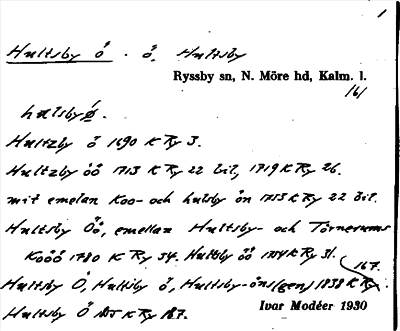 1
Hultsby ö . ö. Hultsby
Ryssby sn, N. Möre hd, Kalm. l.
161
hulsby ö.
Hultzby ö 1690 K Ry 3.
Hultzby öö 1713 K Ry 22 bil, 1719 K Ry 26.
mit emelan Koo- och hulsby ön 1713 K Ry 22 bil.
Hultsby Öö, emellan Hultsby- och Törnerums
Koöö 1780 K Ry 54. Hultsby öö K Ry 31.
167.
Hultsby Ö, Hultsby ö, Hultsby-öns (gen) 1838 K Ry
Hultsby Ö K Ry 187.
Ivar Modéer 1930